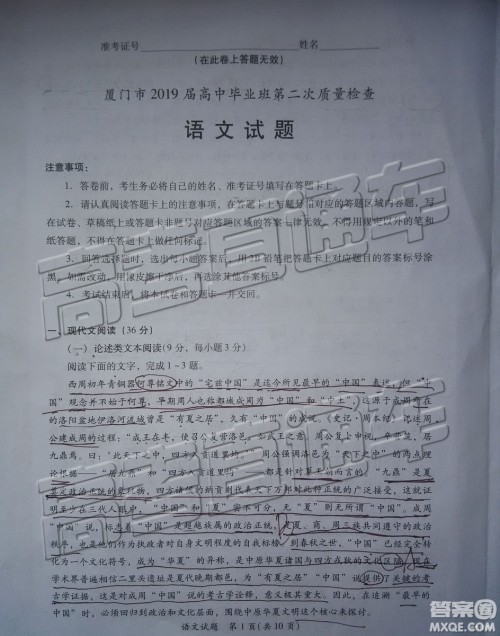 准考证号 姓名
(在此卷上答题无效)
厦门市 2019 届高中毕业班第二次质量检查
语文试题
注意事项:
1. 答卷前,考生务必将自己的姓名、准考证号填写在答题卡上。
2. 请认真阅读答题卡上的注意事项,在答题卡上与题号相对应的答题区域内答题,写
在试卷、草稿纸上或答题卡非题号对应答题区域的答案一律无效。不得用规定以外的笔和
纸答题,不得在答题卡上做任何标记。
3. 回答选择题时,选出每小题答案后,用 2B 铅笔把答题卡上对应题目的答案标号涂
黑。如需改动,用橡皮擦干净后,再选涂其他答案标号。
4. 考试结束后,将本试卷和答题卡一并交回。
一、现代文阅读(36 分)
(一)论述类文本阅读(9 分,每小题 3 分)
阅读下面的文字,完成 1~3 题。
西周初年青铜器何尊铭文中的“宅兹中国”是迄今所见最早的“中国”表述,但“中
国”观念并不始于何尊,早期都城成周为“中国”和“中土”
的洛阳盆地伊洛河流域曾是“有夏之居”,久有“中国”的成说。《史记·周本纪》记述周
公建成周的过程:“成王在丰,使召公复营洛邑,如武王之意。周公复卜申视,卒营筑,居
九鼎焉。曰:‘此天下之中,四方入贡道里均。’”周公强调洛邑为“天下之中”的两点理
论依据——“居九鼎”和“四方入贡道里均”,
明至少在三代人眼中,“中国”和“夏”密不可分,无“夏”则无所谓“中国”。成周
“中国”说,标志着“中国”是超越族属的政治正统,是夏、商、周三族共同遵守的政治
秩序,也是他们作为执政者对自身文明程度的自我标榜。到春秋之世,“中国”已经完全转
化为一个文化符号,成为“华夏”的异称,是中原华夏诸国与四方在秋的文化区隔。现在
学术界普遍相信二里头遗址是夏代晚期都邑,为“夏代中国”说提供了关键的考
古学证据。这是对“中国”成说的考古学诠释,意义极其重大。因此,在追溯“最早的
“中国”时,必须回归到政治和文化层面,围绕中原华夏文明这个核心来探讨。
语文试题 第 1 页(共 10 页)
高考直通车
高考直通车
高考直通车
答案圈
MXEQ.COM